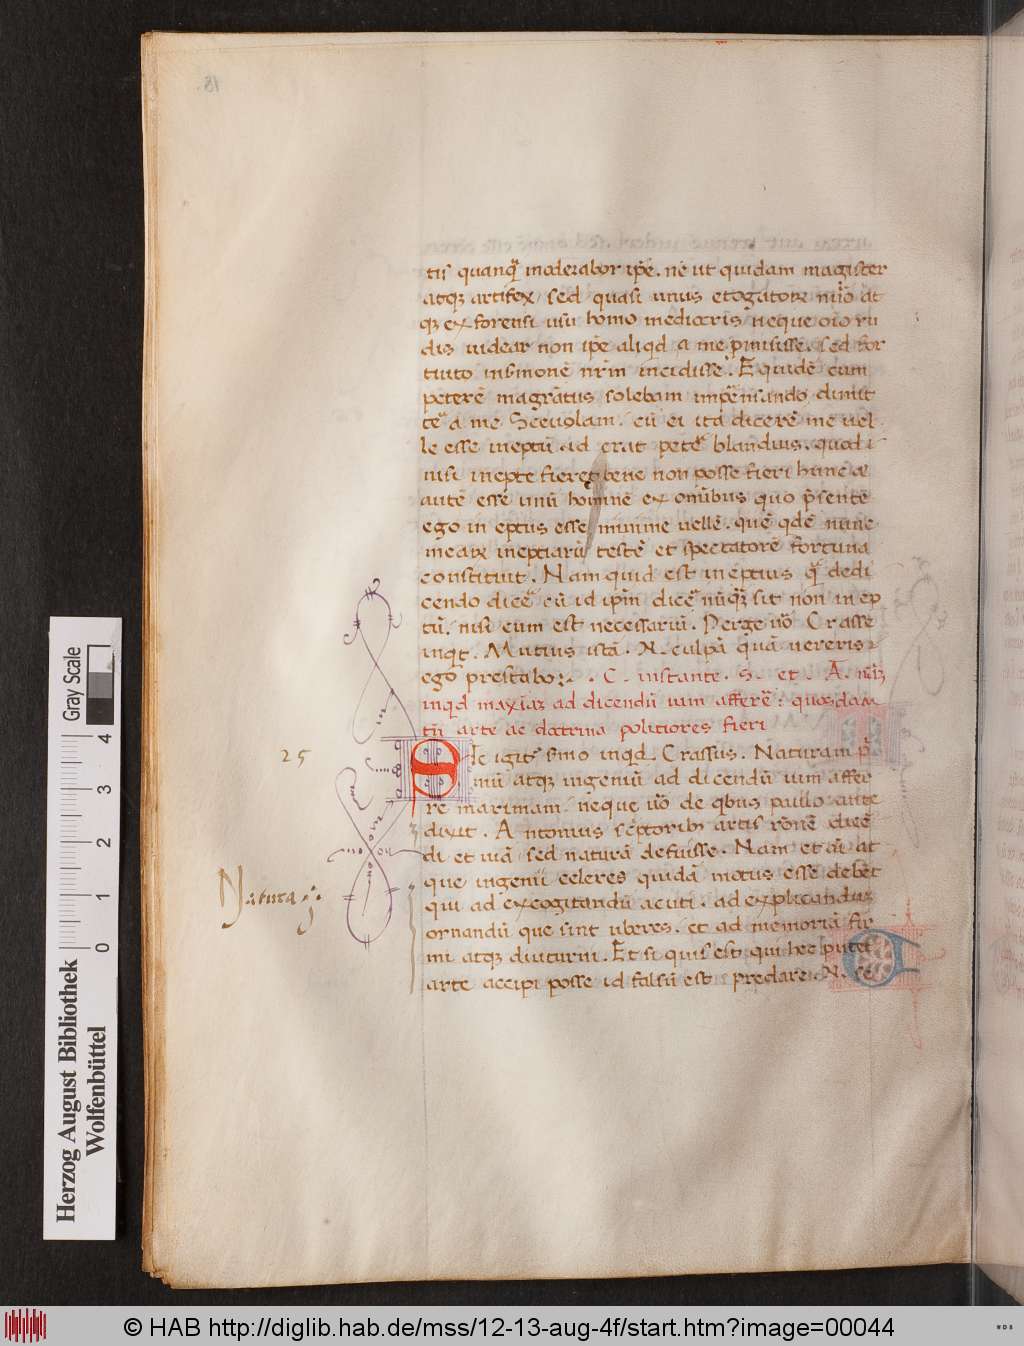 18.
tis quanq̃ moderabor ip̃e. ne ut quidam magister
atqꝫ artifex / sed quasi unus etogatoꝝ nũo at
qꝫ ex forensi usu homo mediocris neque oĩo ru
dis uidear non ip̃e aliqid a me p̃misisse. sed for
tuito insmonẽ nr̃m incidisse. Equidẽ cum
peterẽ magrãtus solebam in p̃ensando dimit
te a me Sceuolam. cũ ei ita dicerẽ me uel
le esse ineptũ. id erat petẽ blandius. quod i
nisi inepte fieret bene non posse fieri hunc ãe
autẽ essẽ unũ hominẽ ex omnibus quo p̃sentẽ
ego in eptus esse minime uellẽ. quẽ qdẽ nunc
meaꝝ ineptiarũ testẽ et spectatorẽ fortuna
constituit. Nam quid est ineptius q̃ dedi
cendo dicẽ cũ id ip̃m dicẽ nũqꝫ sit non inep
tũ. nisi cum est necessariũ. Perge uo Crasse
inqt. Mutius istã. N. culpã quã uereris
ego prestabo:. . C. instante. S. et. A. nũꝫ
inqid maxĩaꝫ ad dicendũ uim afferẽ: quosdam
tñ arte ac doctrina politiores fieri
25
Sic igit̃ sm̃o inqd Crassus. Naturam p̃
mũ atqꝫ ingeniũ ad dicendũ uim affer
re maximam. neque uo de qbus paulo ante
dixit. Antonius sc̃ptoribꝫ artis rõnẽ dicẽ
di et uiã sed naturã defuisse. Nam et ãi at
que ingenii celeres quidã motus esse debẽt
Natura
qui ad excogitandũ acuti. ad explicanduꝫ
ornandũ que sint uberes. et ad memoriã fir
mi atqꝫ diuturni. Et si quis est qui hec putet
arte accipi posse id falsũ est. preclare. N. se
Gray Scale
4
3
2
1
0
Herzog August Bibliothek
Wolfenbüttel
© HAB http://diglib.hab.de/mss/12-13-aug-4f/start.htm?image=00044